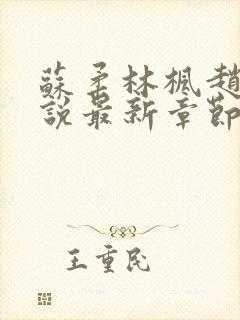 蘇柔林楓趙
說最新章節
王重民